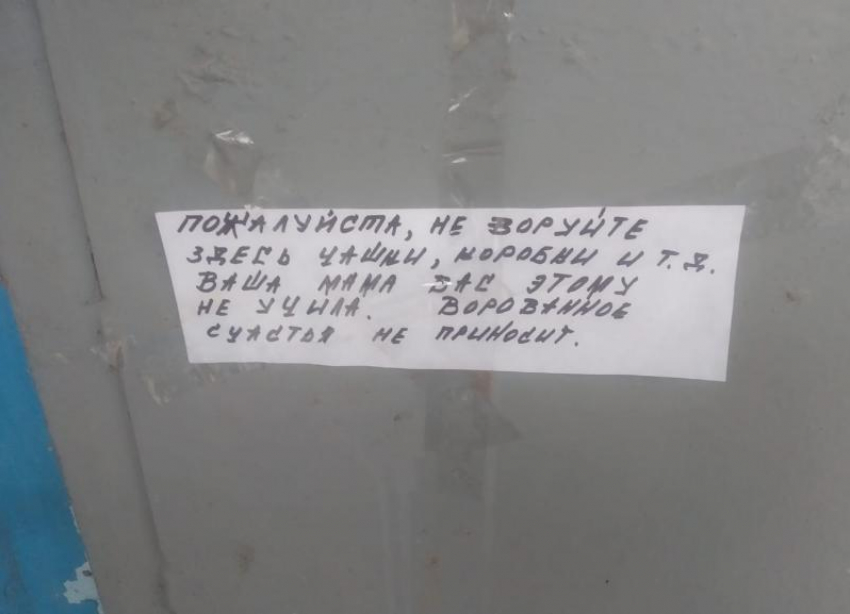 ПОЖАЛУЙСТА, НЕ ВОРУЙТЕ
ЗДЕСЬ ЧАШКИ, КОРОБКИ И Т.Д.
ВАША МАМА ВАС ЭТОМУ
НЕ УЧИЛА. ВОРОВАННОЕ
СЧАСТЬЯ НЕ ПРИНОСИТ.